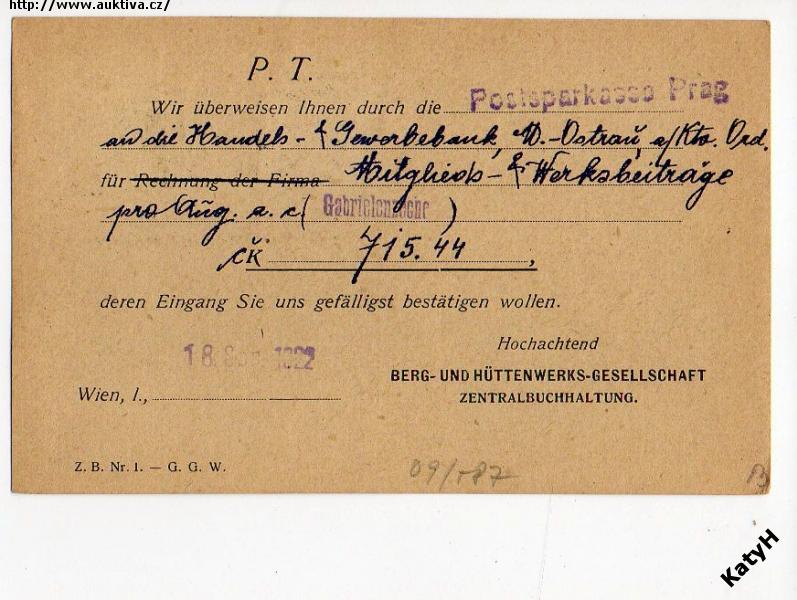 http://www.auktiva.cz/
P. T.
Wir überweisen Ihnen durch die Postsparkassa Prag
an die Handels- & Gewerbebank, M.-Ostrau a/Kto. Ord.
für Rechnung der Firma Mitglieds- & Werksbeiträge
pro Aug. a. c. (Gabrielenzeche)
čK 715.44,
deren Eingang Sie uns gefälligst bestätigen wollen.
Hochachtend
18. Sep. 1922
BERG- UND HÜTTENWERKS-GESELLSCHAFT
Wien, I.,
ZENTRALBUCHHALTUNG.
Z. B. Nr. 1. — G. G. W.
KatyH